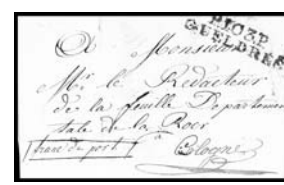 P.103.P.
GUELDRES
A Monsieur
Mr. le Redacteur
de la feuille Departemen
tale de la Roer
franc de port à Cologne